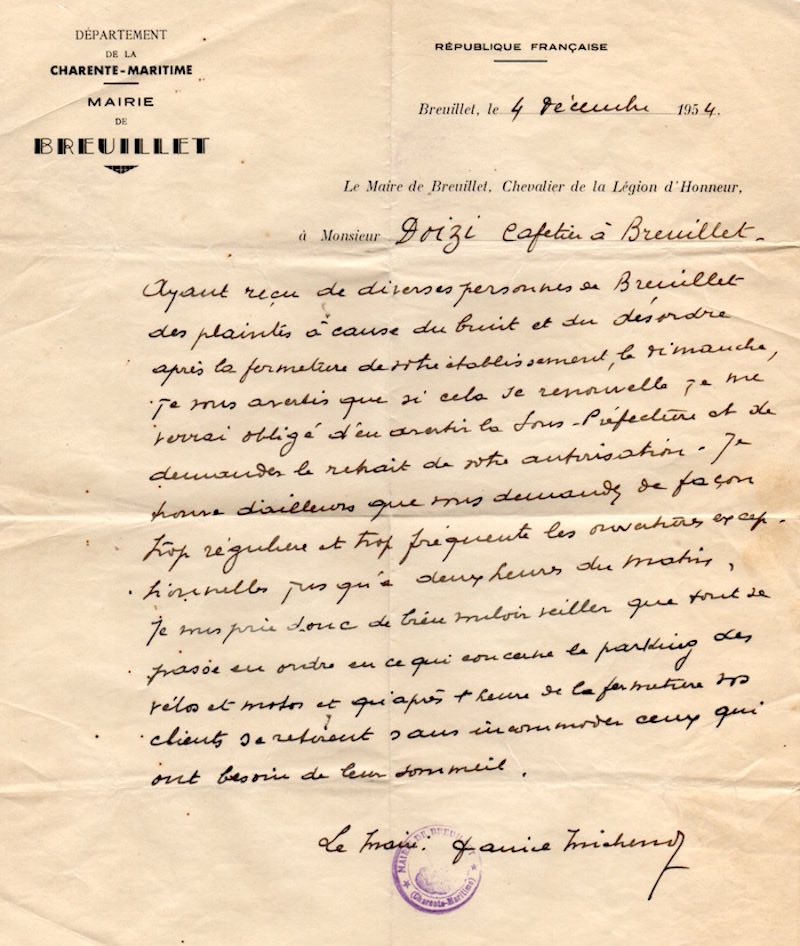 DÉPARTEMENT
DE LA
CHARENTE-MARITIME
MAIRIE
DE
BREUILLET
RÉPUBLIQUE FRANÇAISE
Breuillet, le 4 décembre 1954.
Le Maire de Breuillet, Chevalier de la Légion d'Honneur,
à Monsieur Doizi Cafetier à Breuillet.
Ayant reçu de diverses personnes de Breuillet
des plaintes à cause du bruit et du désordre
après la fermeture de votre établissement, le dimanche,
je vous avertis que si cela se renouvelle je me
verrai obligé d'en avertir la Sous-Préfecture et de
demander le retrait de votre autorisation. Je
trouve d'ailleurs que vous demandez de façon
trop régulière et trop fréquente les ouvertures excep-
tionnelles jusqu'à deux heures du matin.
Je vous prie donc de bien vouloir veiller que tout se
passe en ordre en ce qui concerne le parking des
vélos et motos et qu'après heure de la fermeture vos
clients se retirent sans incommoder ceux qui
ont besoin de leur sommeil.
Le Maire.
MAIRIE DE BREUILLET
(Charente-Maritime)